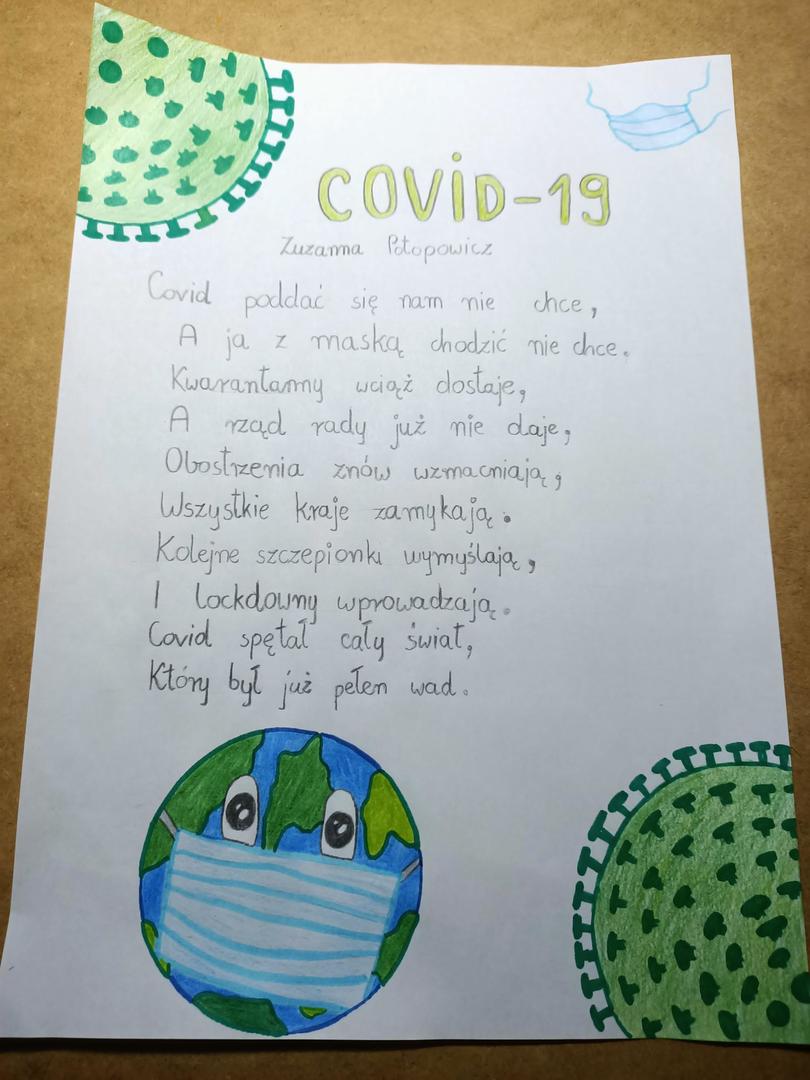 COVID-19
Zuzanna Potopowicz
Covid poddać się nam nie chce,
A ja z maską chodzić nie chce.
Kwarantanny wciąż dostaje,
A rząd rady już nie daje,
Obostrzenia znów wzmacniają,
Wszystkie kraje zamykają.
Kolejne szczepionki wymyślają,
I lockdowny wprowadzają.
Covid spętał cały świat,
Który był już pełen wad.